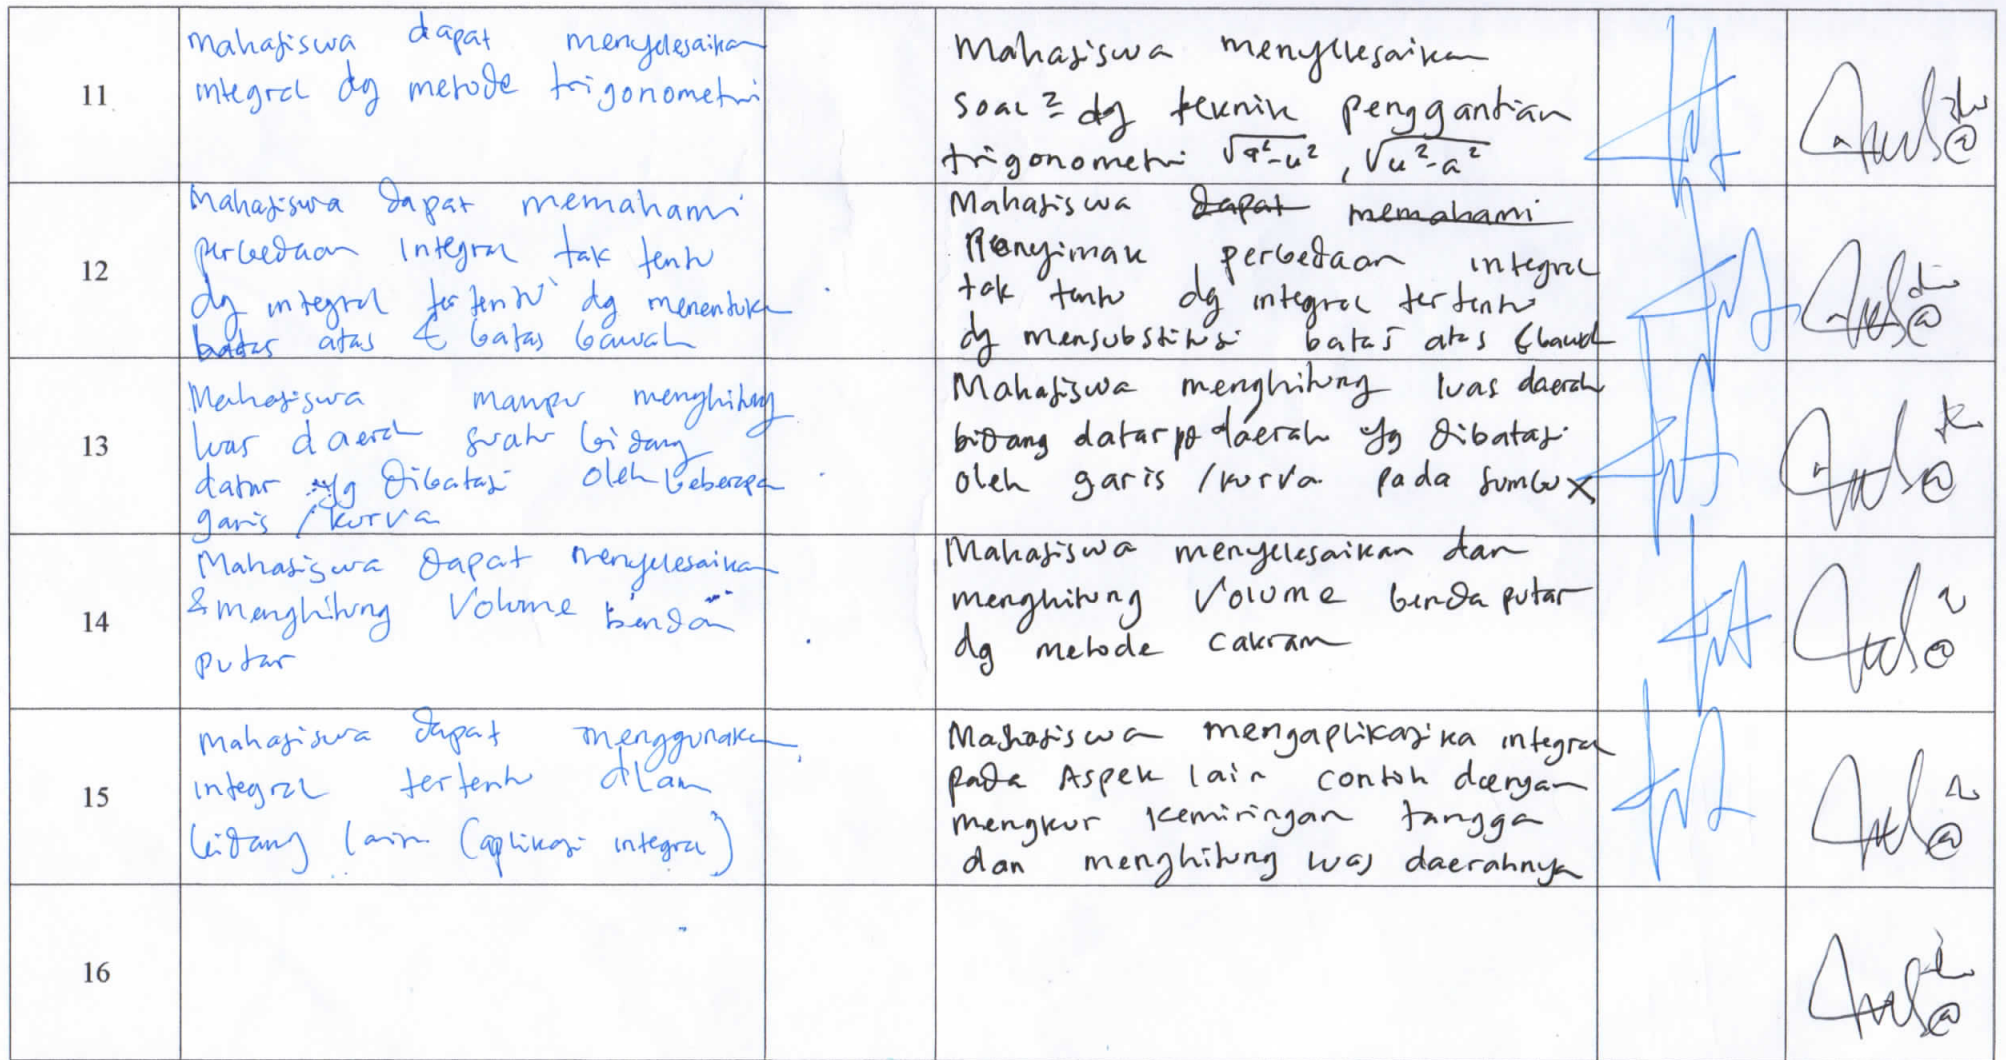 11
Mahasiswa dapat menyelesaikan
integral dg metode trigonometri
Mahasiswa menyelesaikan
soal² dg teknik penggantian
trigonometri √a²-u² , √u²-a²
12
Mahasiswa dapat memahami
perbedaan integral tak tentu
dg integral tertentu dg menentukan
batas atas & batas bawah
Mahasiswa dapat memahami
Menyimak perbedaan integral
tak tentu dg integral tertentu
dg mensubstitusi batas atas & bawah
13
Mahasiswa mampu menghitung
luas daerah suatu bidang
datar yg dibatasi oleh beberapa
garis / kurva
Mahasiswa menghitung luas daerah
bidang datar pd daerah yg dibatasi
oleh garis / kurva pada sumbu x
14
Mahasiswa dapat menyelesaikan
& menghitung Volume benda
putar
Mahasiswa menyelesaikan dan
menghitung Volume benda putar
dg metode cakram
15
Mahasiswa dapat menggunakan
integral tertentu dlam
bidang lain (aplikasi integral)
Mahasiswa mengaplikasika integral
pada Aspek lain contoh dengan
mengkur kemiringan tangga
dan menghitung luas daerahnya
16